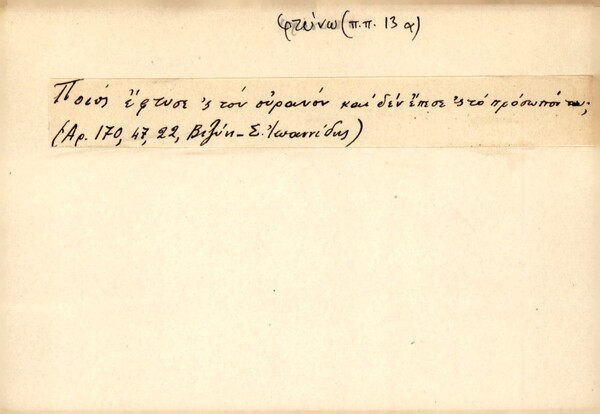 φτύνω (π.π. 13 α)
Ποιός ἔφτυσε 'ς τόν οὐρανόν καί δέν ἔπεσε 'ς τό πρόσωπόν του;
(Ἀρ. 170, 47, 22, Βιζύη - Σ. Ἰωαννίδης)